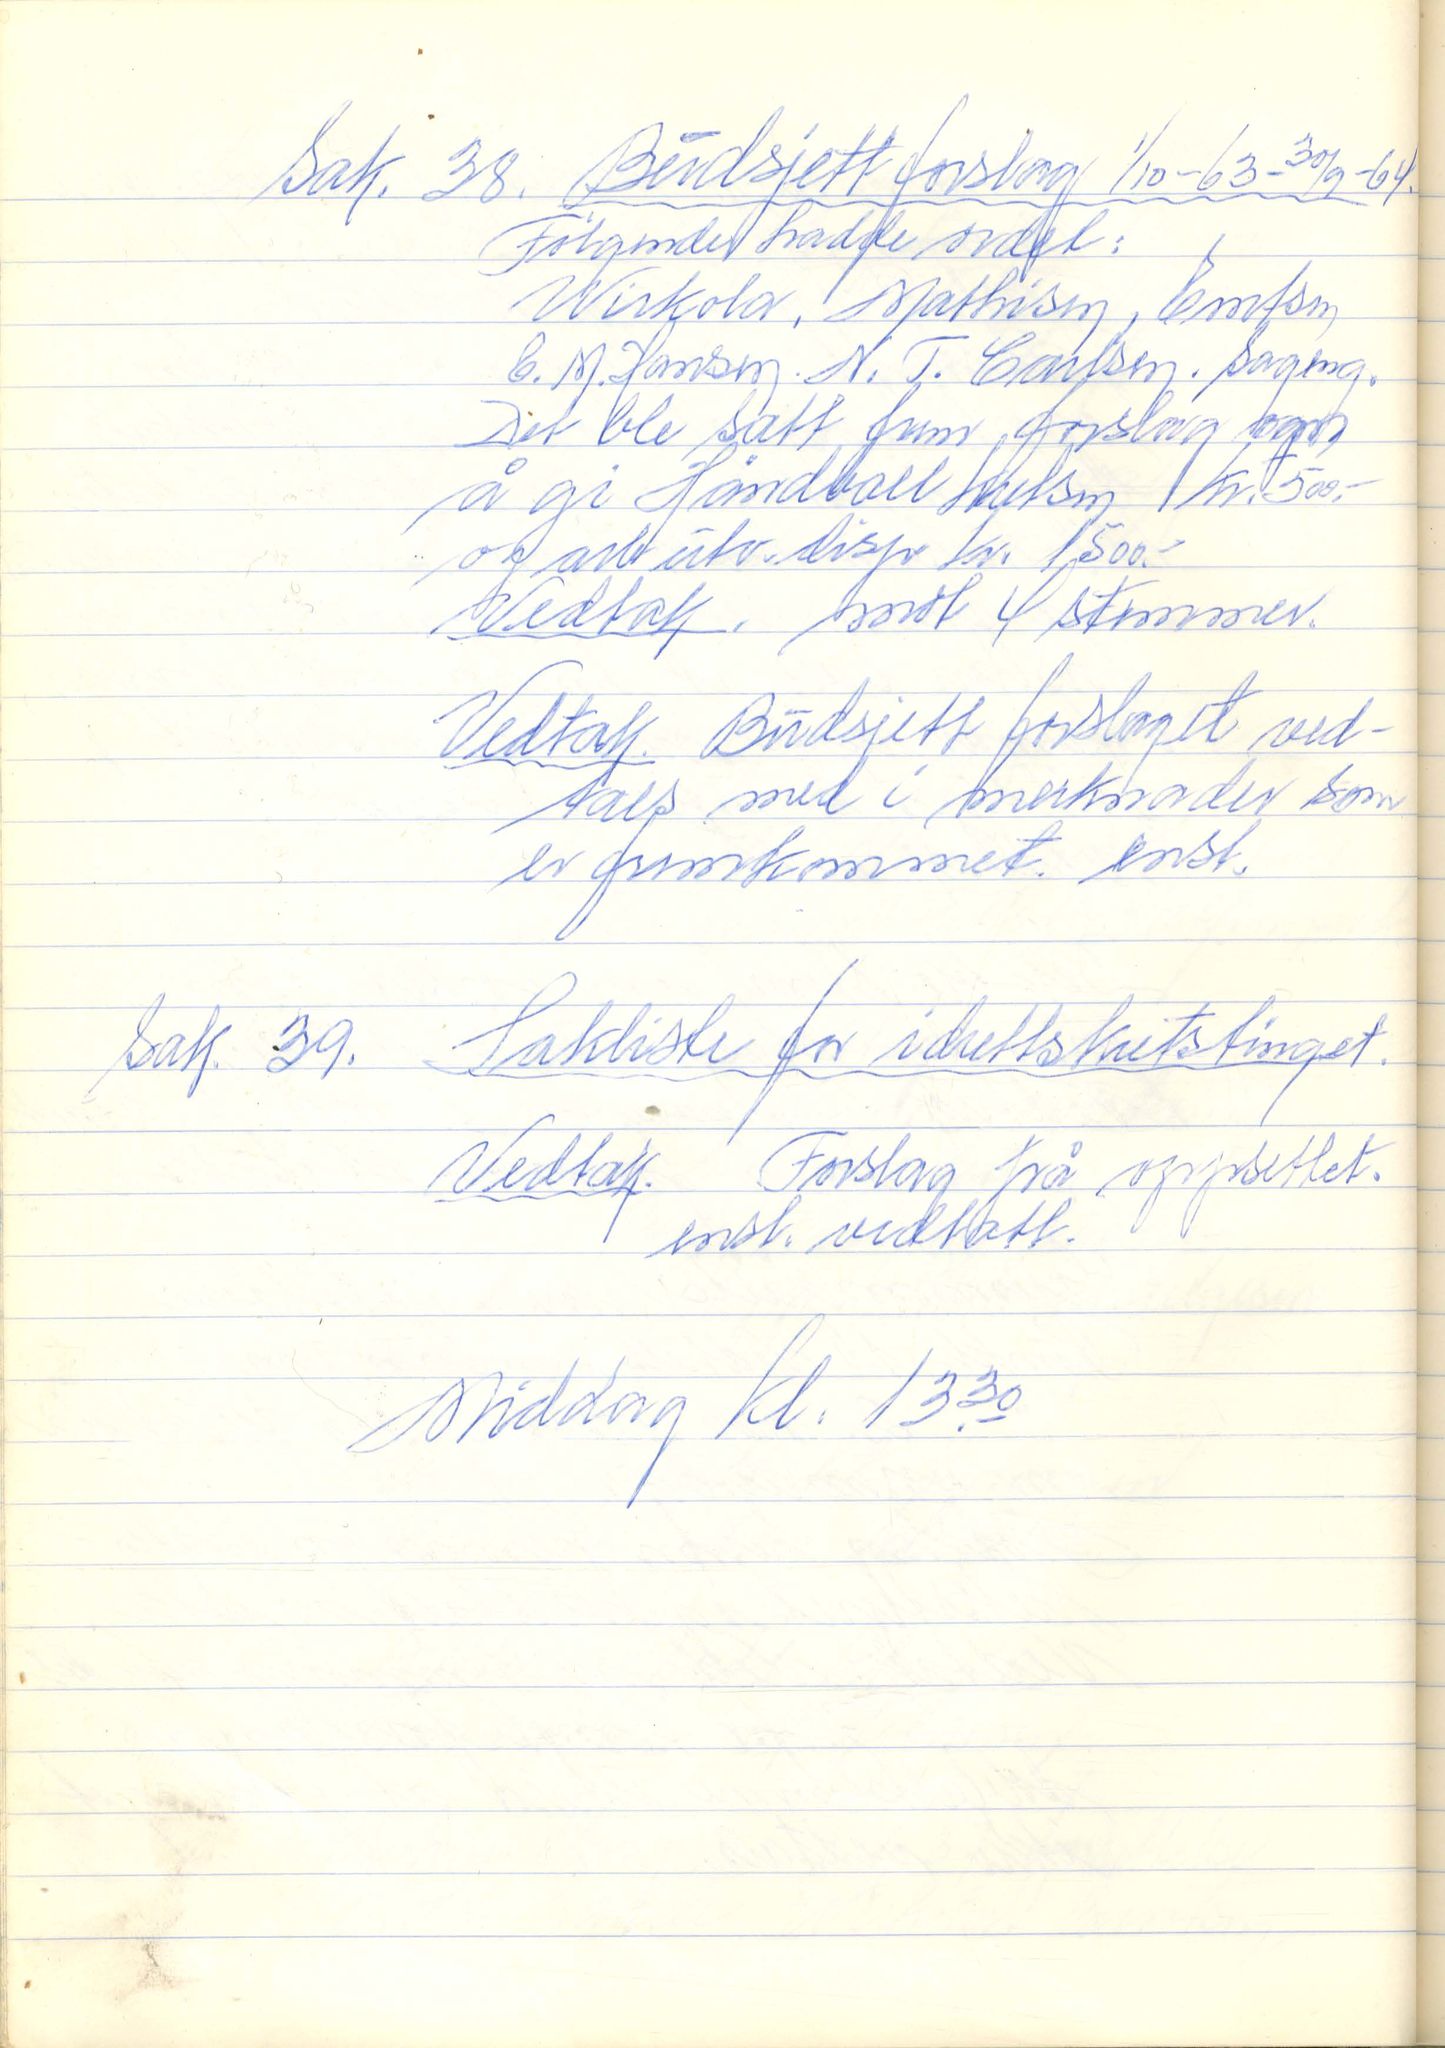 Sak. 38. Budsjett forslag 1/10-63-30/9-64.
Følgende hadde ordet:
Wirkola, Mathisen,
E. M. Hansen. N. T. Carlsen. Sageng.
Det ble satt frem forslag om
å gi Håndball kretsen kr. 500.-
og arb utv. disp kr. 1500.-
Vedtak. mot 4 stemmer.
Vedtak. Budsjett forslaget ved-
taes med i merknader som
er fremkommet. enst.
Sak. 39. Sakliste for idrettskretstinget.
Vedtak. Forslag frå oppsettet.
enst. vedtatt.
Middag kl. 13.30